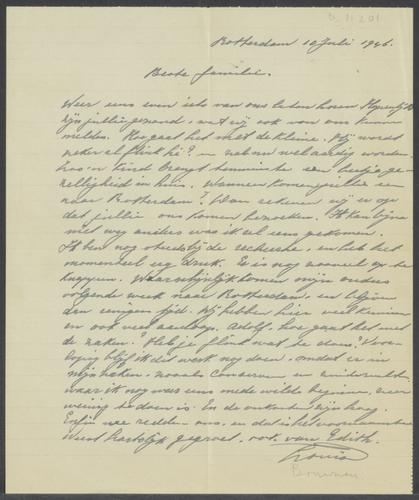 Rotterdam 10 Juli 1946.
Beste familie.
Weer eens even iets van ons laten horen. Hopenlijk
zijn jullie gezond, wat wij ook van ons kunnen
melden. Hoe gaat het met de kleine. Hij wordt
zeker al flink hè? en zal nu wel aardig worden.
Zoo'n kind brengt tenminste een beetje ge-
zelligheid in huis. Wanneer komen jullie eens
naar Rotterdam? Wan rekenen wij er op
dat jullie ons komen bezoeken. Ik kan bijna
niet weg anders was ik al eens gekomen.
Ik ben nog steeds bij de recherche, en heb het
momenteel erg druk. Er is nog zooveel op te
knappen. Waarschijnlijk komen mijn ouders
volgende week naar Rotterdam, en blijven
dan eenigen tijd. Wij hebben hier veel kennissen
en ook veel aanloop. Adolf, hoe gaat het met
de zaken? Heb je flink wat te doen? Voor-
loopig blijf ik dit werk nog doen, omdat er in
mijn zaken, zooals Conserven en
waar ik nog eens mede wilde beginnen, zeer
weinig te doen is. En de onkosten zijn hoog.
Enfin we redden ons, en dat is het voornaamste
Weest hartelijk gegroet, ook van Edith.
Louis